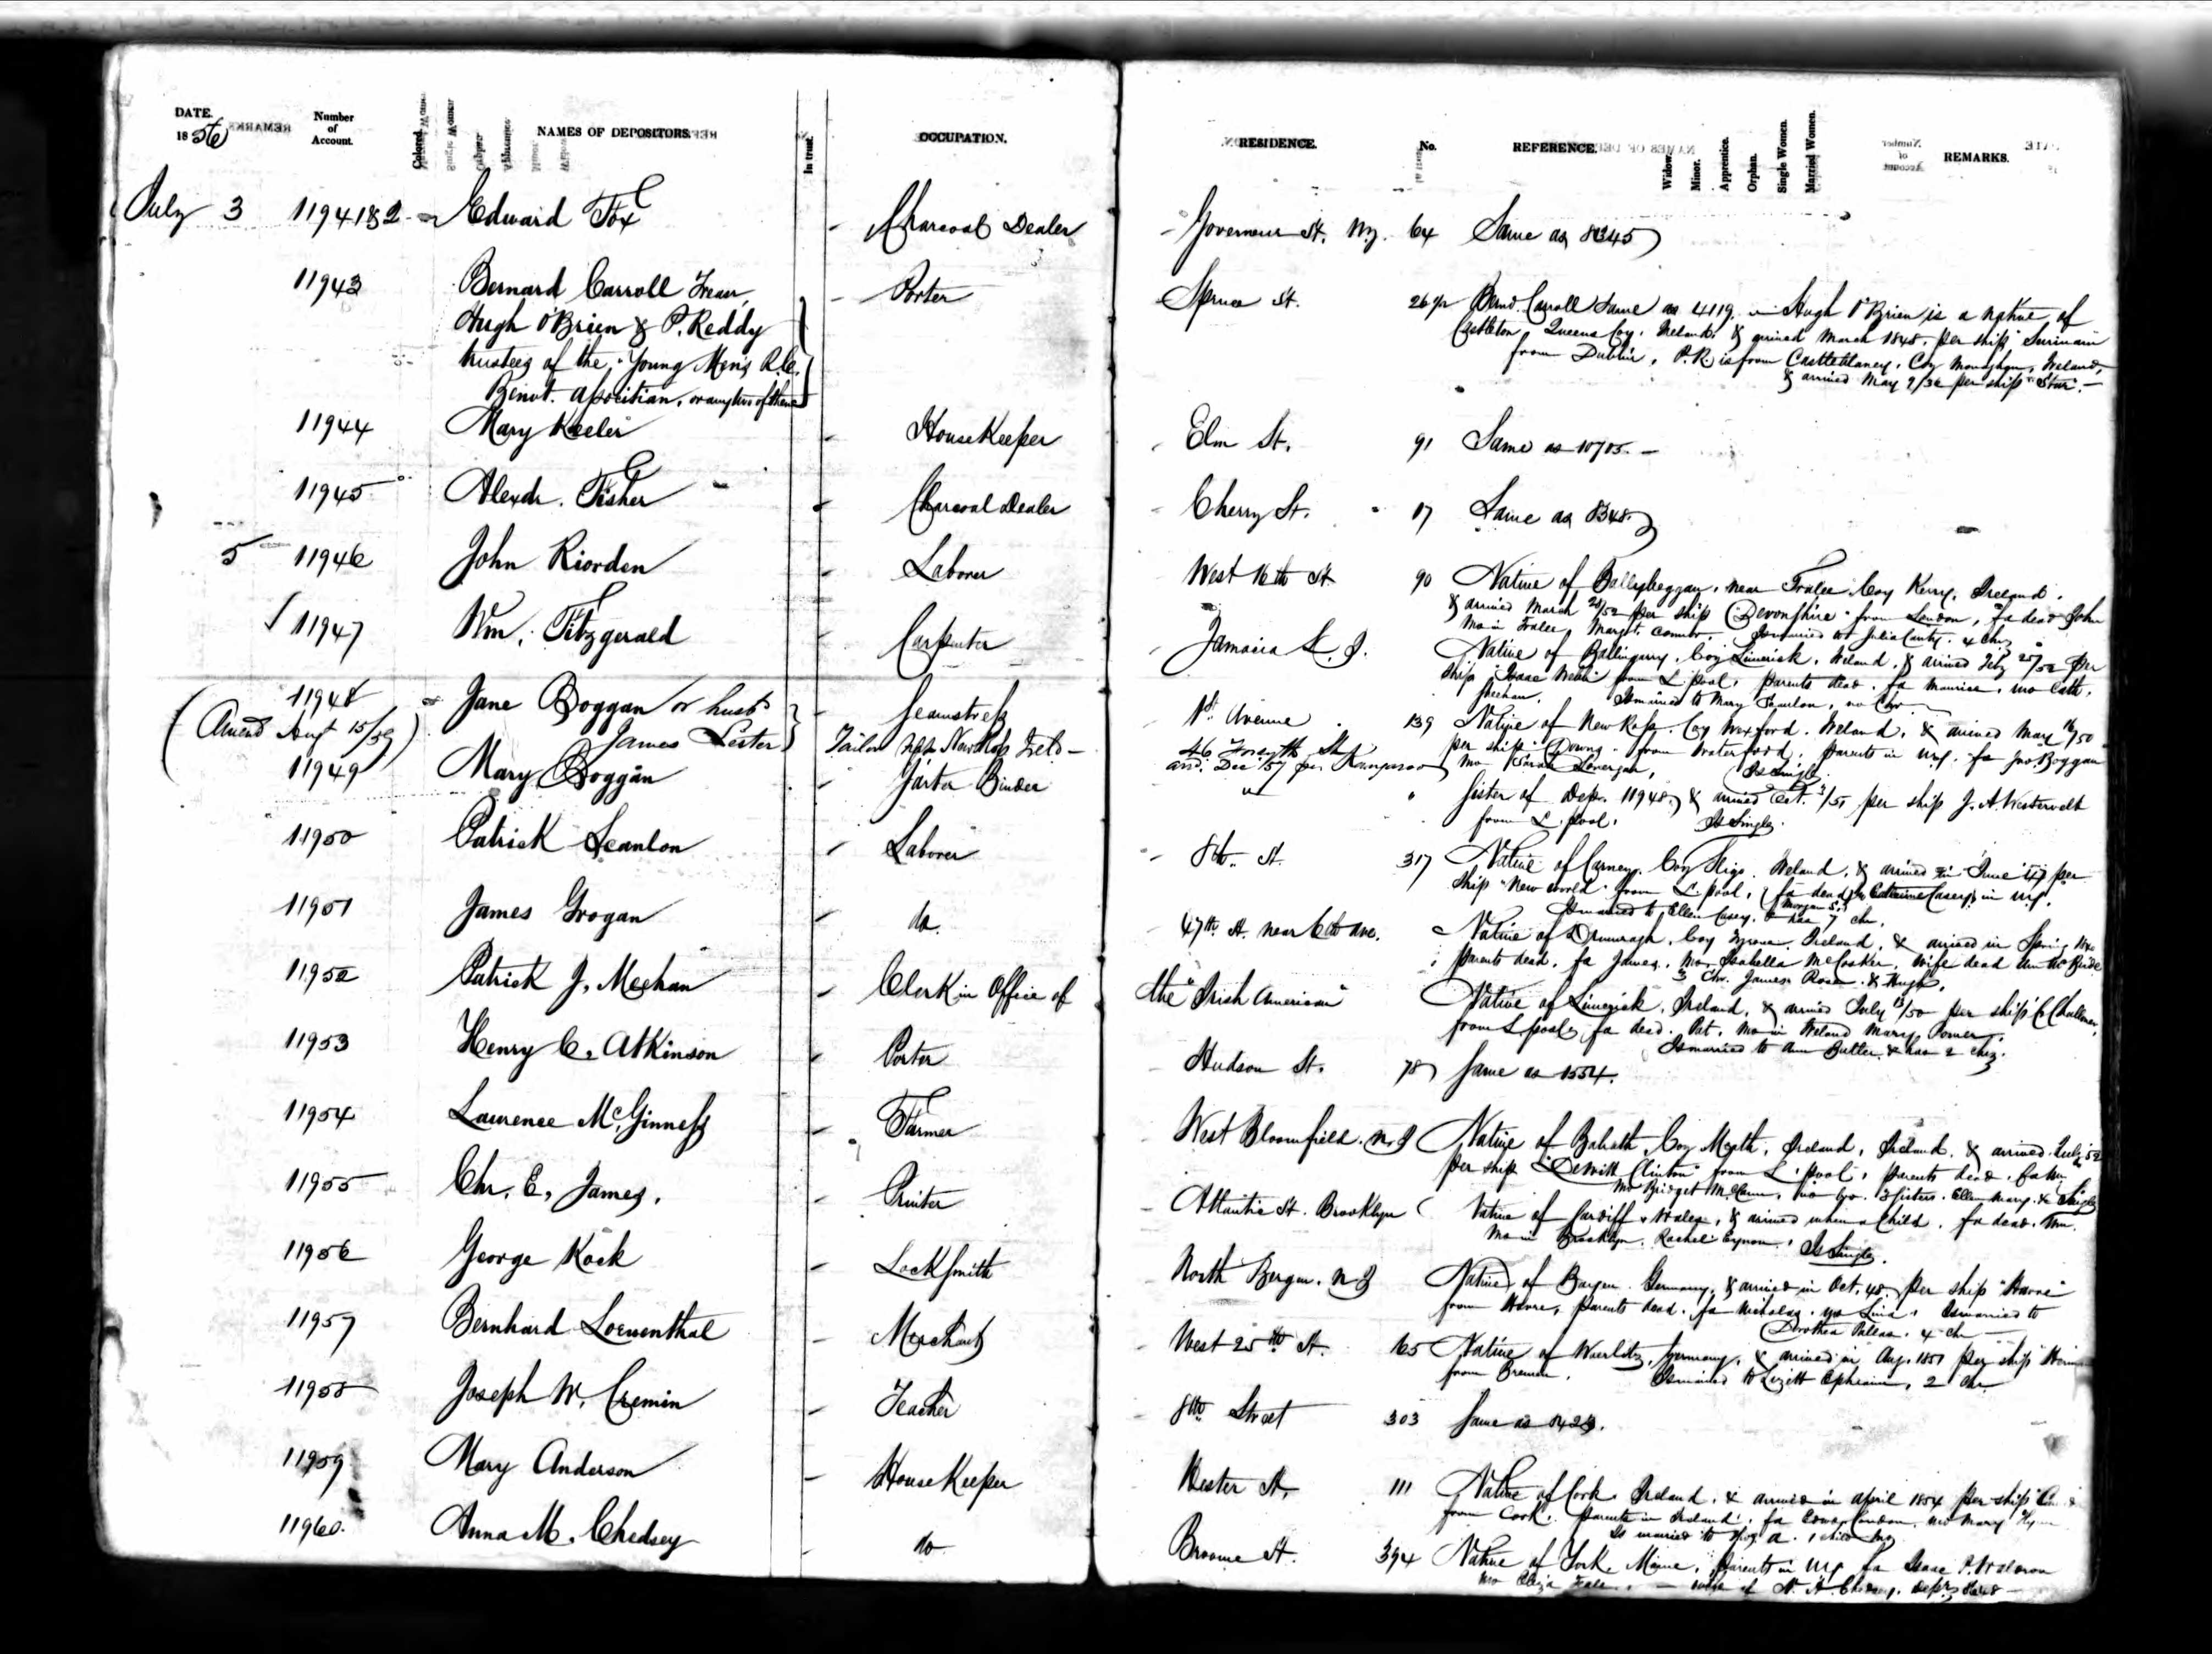 DATE.
1856
Number
of
Account.
Colored.
NAMES OF DEPOSITORS.
In trust.
OCCUPATION.
RESIDENCE.
No.
REFERENCE.
Widow.
Minor.
Apprentice.
Orphan.
Single Women.
Married Women.
REMARKS.
July 3 11941 & 2 Edward Fox - Charcoal Dealer - Governeur St. N.Y. 64 Same as
11943 Bernard Carroll Treasr. - Porter - Spruce St. 26 1/2 Bernd. Carroll Same as 4119. Hugh O'Brien is a native of
Hugh O'Brien & P. Reddy Castleton, Queens Coy. Ireland, & arrived March 1848. per ship Surinam
trustees of the "Young Men's R.C. from Dublin. P.R. is from Coy Monaghan, Ireland,
Benvt. Association, or any two of them & arrived May per ship "Star". -
11944 Mary Keeler - HouseKeeper - Elm St. 91 Same as 10705. -
11945 Alexdr. Fisher - Charcoal Dealer - Cherry St. 17 Same as 8348.
5 11946 John Riorden - Laborer - West 16th St. 90 Native of Ballybeggan, near Tralee Coy Kerry, Ireland.
& arrived March 28/52 per ship "Devonshire" from London, fa dead John
mo in Tralee Margt. Connor. Is married to Julia 4 Chn
11947 Wm. Fitzgerald - Carpenter - Jamaica L.I. Native of Ballingarry, Coy Limerick, Ireland, & arrived Feby 25/52 per
ship "Isaac Webb" from L.pool, parents dead. fa Maurice, mo Cath.
Sheehan. Is married to Mary Scanlon, no Chn
11948 Jane Boggan or husbd - Seamstress 1st Avenue 139 Native of New Ross Coy Wexford. Ireland, & arrived May 16/50
(Amend Aug 15/59) James Lester Tailor New Ross Ireld - 46 Forsyth St per ship from Waterford, parents in N.Y. fa Jno Boggan
and. Dec /57 per Kangaroo mo Sarah Is Single.
11949 Mary Boggan - Garter Binder " " Sister of Dep. 11948. & arrived Oct. /51 per ship J. A. Westervelt
from L.pool. Is Single.
11950 Patrick Scanlon - Laborer - 8th. St. 317 Native of Carney, Coy Sligo. Ireland, & arrived in June 47 per
ship "New World" from L.pool, fa dead mo Catherine Casey in N.Y.
Is married to Ellen Casey, & has 7 chn.
11951 James Grogan - do. 47th. St. near 6th Ave. Native of Drumragh, Coy Tyrone, Ireland, & arrived in Spring
parents dead. fa James, mo Isabella McCosker, wife dead Ann McBride
3 Chn. James Rose & Hugh.
11952 Patrick J. Meehan - Clerk in Office of the "Irish American" Native of Limerick, Ireland, & arrived July 13/50 per ship
from L.pool, fa dead. Pat. mo in Ireland Mary Power.
Is married to Ann Butler & has 2 chn.
11953 Henry C. Atkinson - Porter - Hudson St. 78 Same as 1554.
11954 Laurence McGinness - Farmer West Bloomfield. N.J Native of Balrath, Coy Meath, Ireland, Ireland, & arrived July 52
per ship "Dewitt Clinton" from L.pool, parents dead. fa Wm
mo Bridget McCann, no bro. 3 sisters. Ellen Mary & Single
11955 Chr. E. James. - Printer - Atlantic St. Brooklyn Native of Cardiff, Wales, & arrived when a Child. fa dead. Wm.
mo in Brooklyn. Rachel Eynon. Is Single.
11956 George Kock - LockSmith North Bergen. N.J Native of Bargen, Germany, & arrived in Oct. 48 per ship "Havre"
from Havre, parents dead. fa Nicholas. mo Lina. Is married to
Dorothea Pallas. 4 chn
11957 Bernhard Loewenthal - Merchant - West 25th St. 165 Native of Germany, & arrived in Aug. 1851 per ship
from Bremen. Is married to Lizett Ephraim, 2 Chn
11958 Joseph W. Cremin - Teacher - 8th Street 303 Same as
11959 Mary Anderson - HouseKeeper Hester St. 111 Native of Cork, Ireland. & arrived in April 1854 per ship
from Cork. parents in Ireland. fa Edwd Condon, mo Mary
Is married to A. 1 child
11960. Anna M. Chedsey - do Broome St. 394 Native of York, Maine, parents in N.Y. fa Isaac P. Waldron
mo Eliza wife of N. A. Chedsey, depr